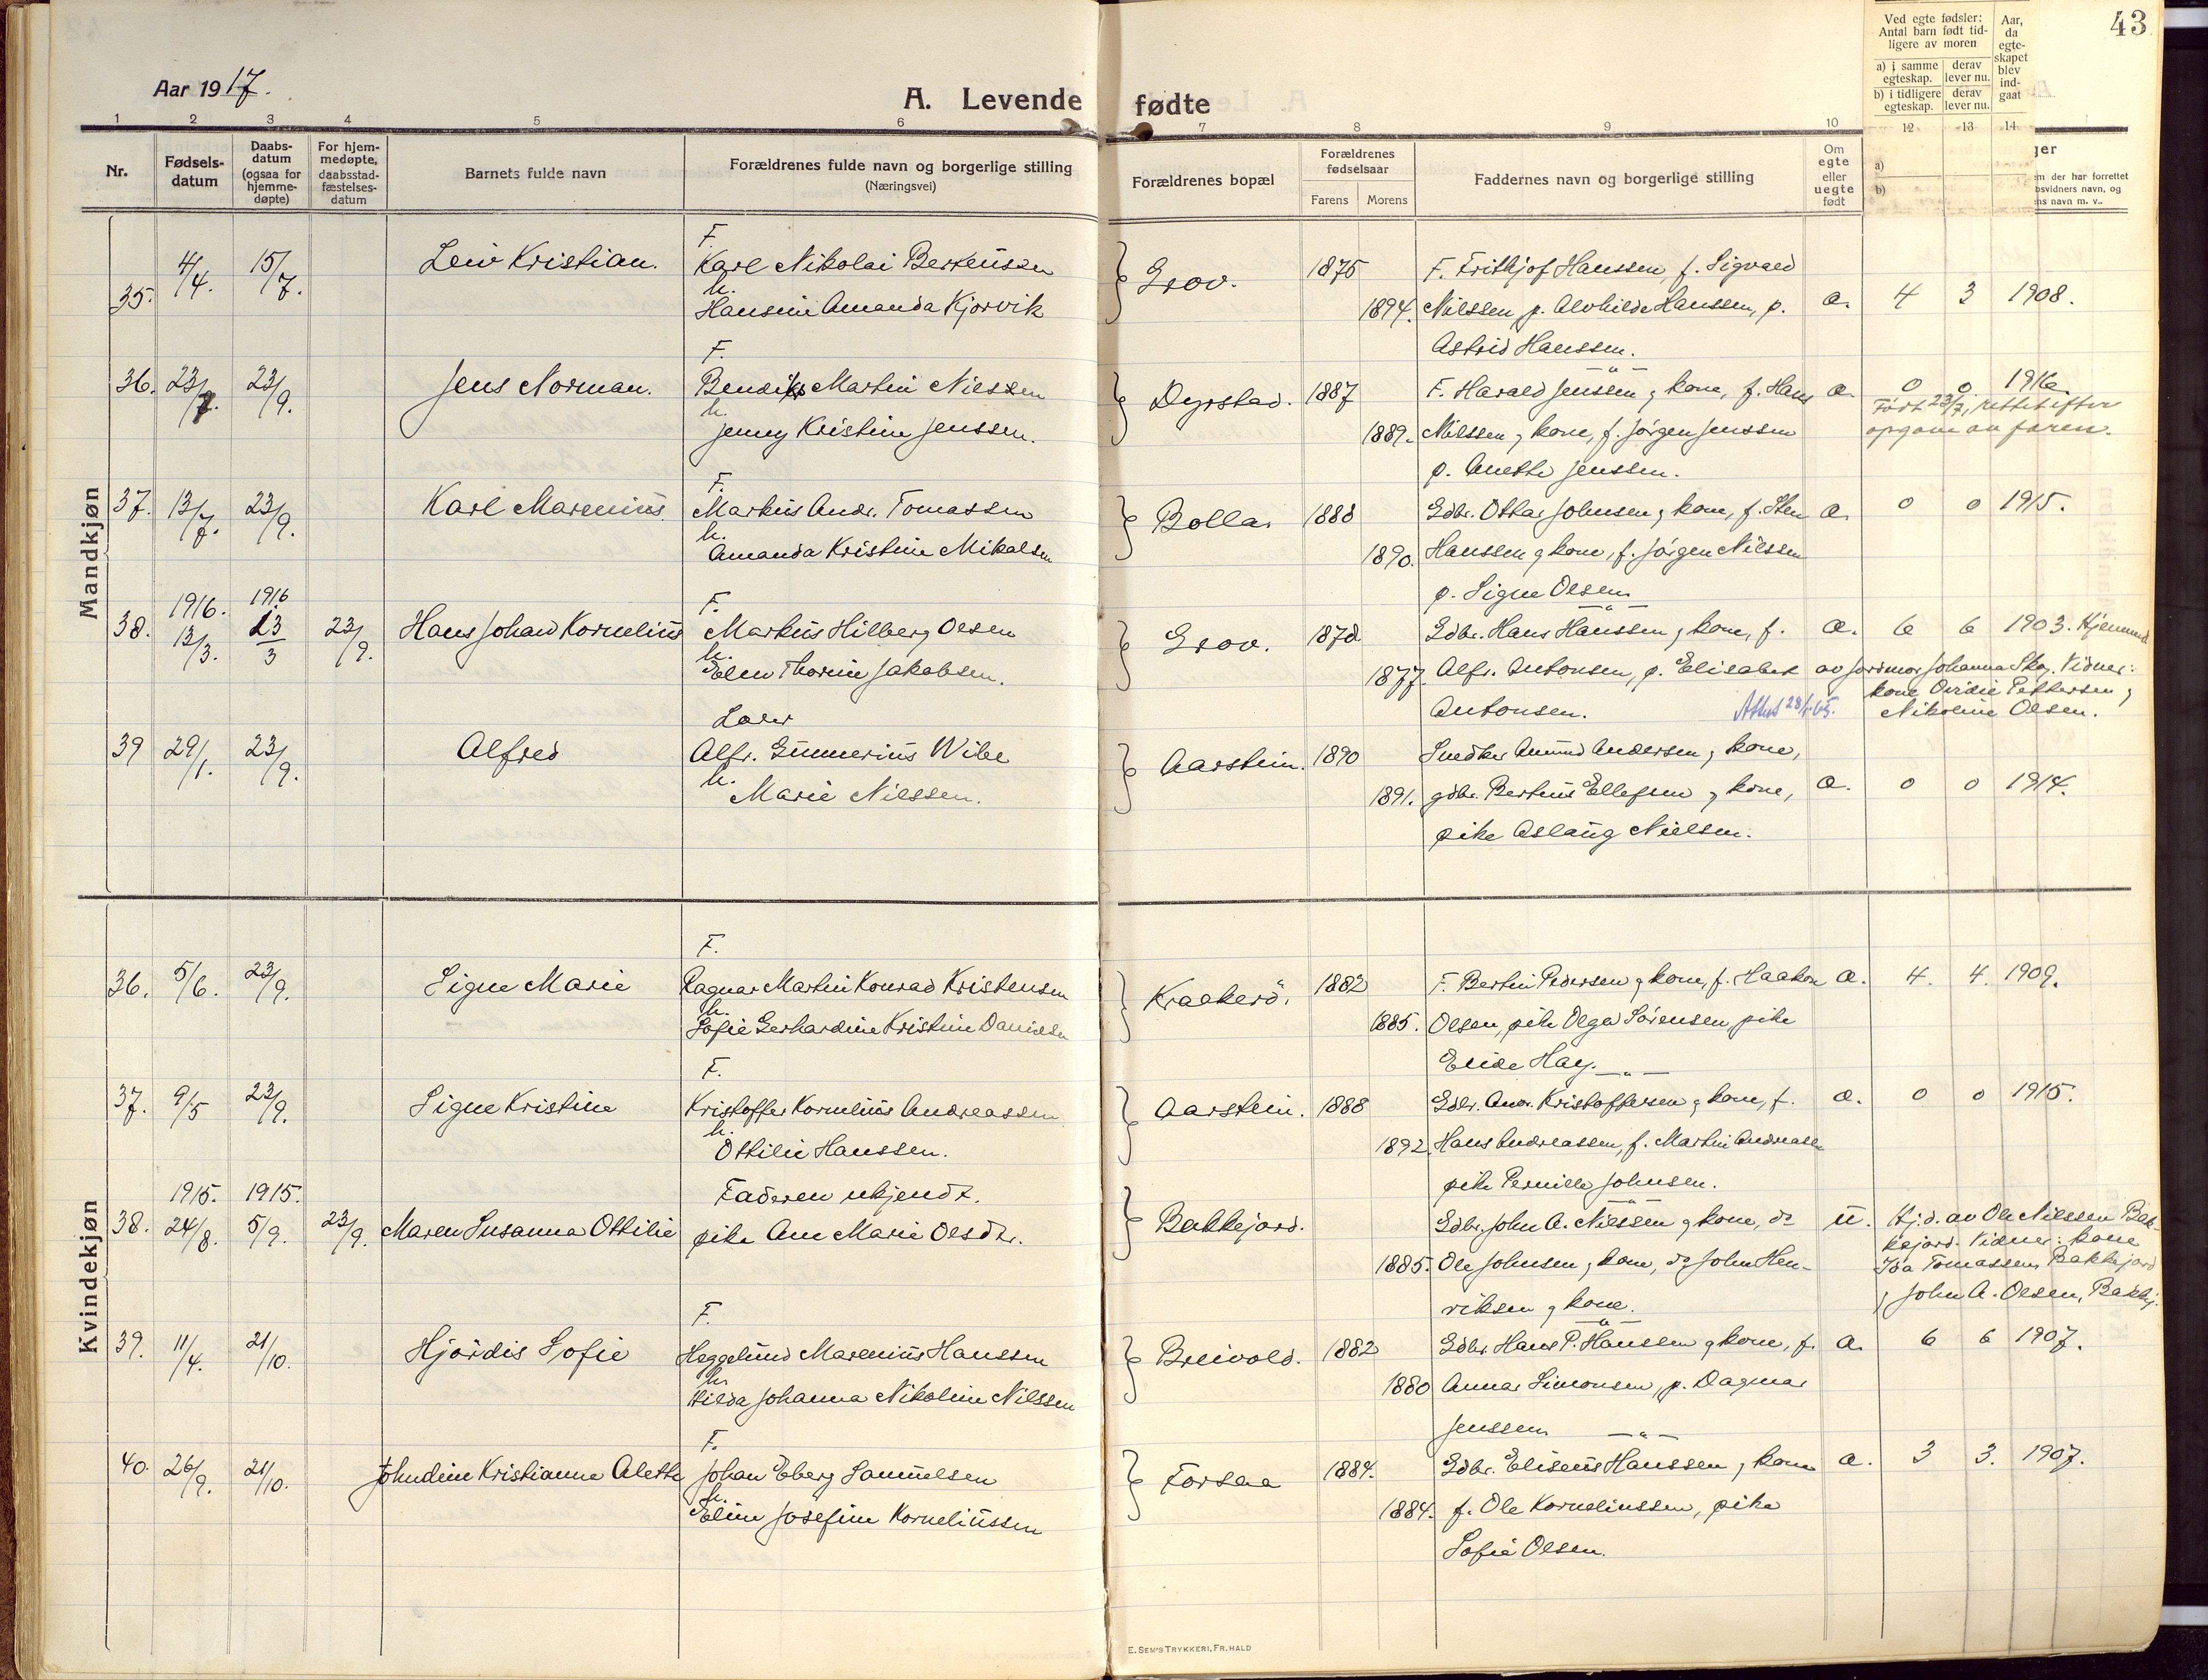 43
Aar 1917.
A. Levende fødte
Ved egte fødsler: Antal barn født tidligere av moren
a) i samme egteskap. derav lever nu.
b) i tidligere egteskap. derav lever nu.
Aar, da egteskapet blev indgaat
1 2 3 4 5 6 7 8 9 10 12 13 14
Nr. Fødsels-datum Daabs-datum (ogsaa for hjemme-døpte) For hjem-medøpte, daabsstad-fæstelses-datum Barnets fulde navn Forældrenes fulde navn og borgerlige stilling (Næringsvei) Forældrenes bopæl Forældrenes fødselsaar Farens Morens Faddernes navn og borgerlige stilling Om egte eller uegte født
a)
b)
ger
m der har forrettet
bsvidners navn, og
ns navn m. v..
Mandkjøn
35. 4/4. 15/7. Leiv Kristian. F. Karl Nikolai Berteussen
h. Hansine Amanda Kjørvik
Grov. 1875 1894.
F. Fritkjof Hanssen, f. Sigvald
Nilssen, p. Alvhilde Hanssen, p.
Astrid Hanssen.
æ. 4 3 1908.
36. 23/7. 23/9. Jens Norman. F. Bendiks Martin Nilssen
h. Jenny Kristine Jenssen.
Dyrstad. 1887 1889.
F. Harald Jenssen g kone, f. Hans
Nilssen g kone, f. Jørgen Jenssen
p. Anette Jenssen.
æ. 0 0 1916
Født 23/7, rettet efter
opgave av faren.
37. 13/7. 23/9. Karl Marenius F. Markus Andr. Tomassen
h. Amanda Kristine Mikalsen
Bolla. 1888 1890.
Gdbr. Ottar Johnsen g kone, f. Sten
Hanssen g kone, f. Jørgen Nilssen
p. Signe Olsen
æ. 0 0 1915.
38. 1916. 13/3. 1916 23/3 23/9. Hans Johan Kornelius F. Markus Hilberg Olsen
h. Elen Thorine Jakobsen.
Grov. 1878 1877.
Gdbr. Hans Hanssen g kone, f.
Alfr. Antonsen, p. Elisabet
Antonsen.
æ. 6 6 1903. Hjemmed
av jordmor Johanna Skog. Vidner:
kone Ovidie Pettersen g
Nikoline Olsen.
39 29/1. 23/9. Alfred Lærer
Alfr. Gunnerius Wibe
h. Marie Nilssen.
Aarstein. 1890 1891.
Snedker Amund Andersen g kone,
gdbr. Berteus Ellefsen g kone,
pike Aslaug Nielsen.
æ. 0 0 1914.
Kvindekjøn
36. 5/6. 23/9. Signe Marie F. Ragnar Martin Konrad Kristensen
h. Sofie Gerhardine Kristine Danielsen
Kraakerø. 1882 1885.
F. Bertin Pedersen g kone, f. Haakon
Olsen, pike Olga Sørensen, pike
Elide Hay.
æ. 4. 4. 1909.
37. 9/5 23/9. Signe Kristine F. Kristoffer Kornelius Andreassen
h. Ottilie Hanssen.
Aarstein. 1888 1892.
Gdbr. Andr. Kristoffersen g kone, f.
Hans Andreassen, f. Martin Andreassen
pike Pernille Johnsen.
æ. 0 0 1915.
38. 1915. 24/8. 1915. 5/9. 23/9. Maren Susanna Ottilie Faderen ukjendt.
pike Ane Marie Olsdtr.
Bakkejord. 1885.
Gdbr. John A. Nilssen g kone, do
Ole Johnsen g kone, do John Hen-
riksen g kone.
u. Hj.d. av Ole Nilssen Bak-
kejord. Vidner: kone
Ida Tomassen Bakkejord
g John A. Olsen, Bakkj.
39. 11/4. 21/10. Hjørdis Sofie F. Heggelund Marenius Hanssen
h. Hilda Johanna Nikoline Nilssen
Breivold. 1882 1880
Gdbr. Hans P. Hanssen g kone, f.
Annar Simonsen, p. Dagmar
Jenssen
æ. 6 6 1907.
40. 26/9. 21/10. Johndine Kristianne Alette F. Johan Eberg Samuelsen
h. Eline Josefine Korneliussen
Forsaa 1884. 1884.
Gdbr. Eliseus Hanssen g kone
f. Ole Korneliussen, pike
Sofie Olsen.
æ. 3 3. 1907.
E. SEM'S TRYKKERI, FR.HALD